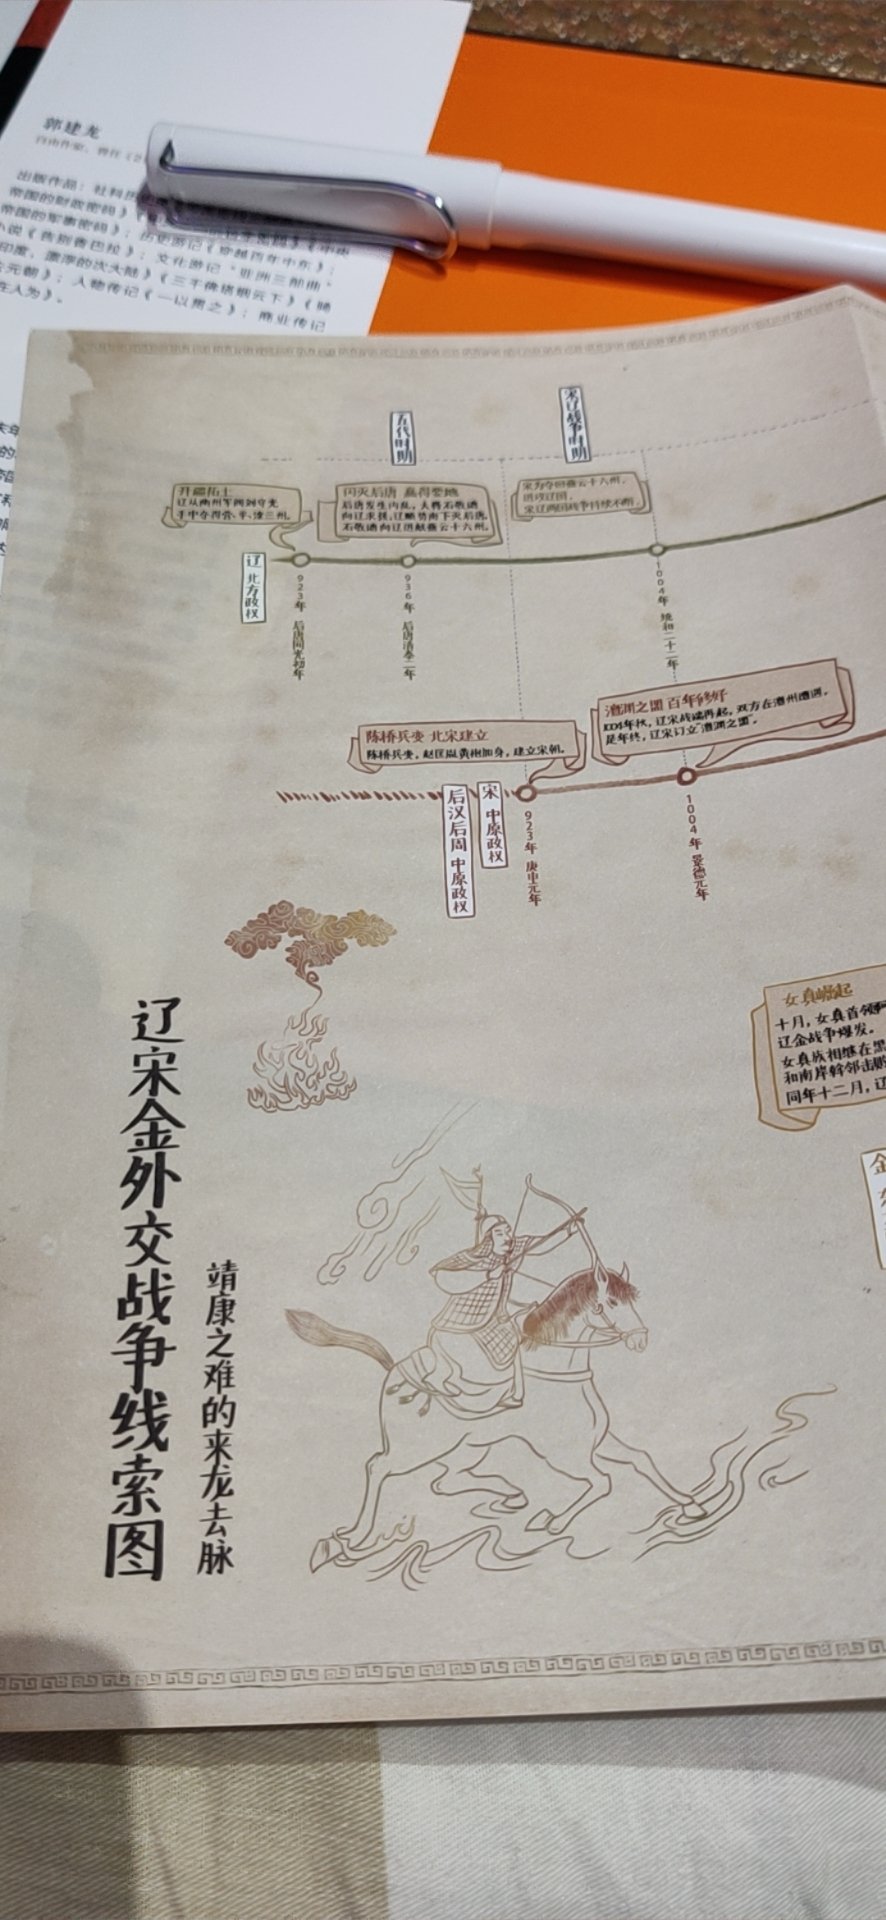 郭建龙
出版作品：社科历
帝国的财政密码》
帝国的军事密码》；历史游记《穿越百年中东》；
小说《告别香巴拉》；文化游记"亚洲三部曲"
印度，漂浮的次大陆》《三千佛塔烟云下》《骑
元前》；人物传记《一以贯之》；商业传记
在人为》。
五代时期
宋辽战争时期
开疆拓土
辽从幽州军阀刘守光
手中夺得营、平、滦三州。
闪灭后唐 赢得要地
后唐发生内乱，大将石敬瑭
向辽求援，辽顺势南下灭后唐。
石敬瑭向辽进献燕云十六州。
宋为夺回燕云十六州，
进攻辽国，
宋辽两国战争持续不断。
辽 北方政权
923年 后唐同光初年
936年 后唐清泰二年
1004年 统和二十二年
陈桥兵变 北宋建立
陈桥兵变，赵匡胤黄袍加身，建立宋朝。
澶渊之盟 百年修好
1004年秋，辽宋战端再起，双方在澶州遭遇。
是年终，辽宋订立"澶渊之盟"。
后汉后周 中原政权
宋 中原政权
923年 庚申元年
1004年 景德元年
女真崛起
十月，女真首领阿
辽金战争爆发。
女真族相继在黑
和南岸斡邻击败
同年十二月，辽
金
辽宋金外交战争线索图
靖康之难的来龙去脉